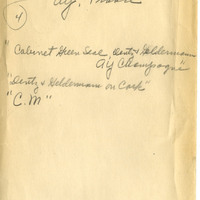 Ay, France
4
"Cabinet Green Seal, Deutz & Geldermann
Ay Champagne"
"Deutz & Geldermann on Cork"
"C. M"